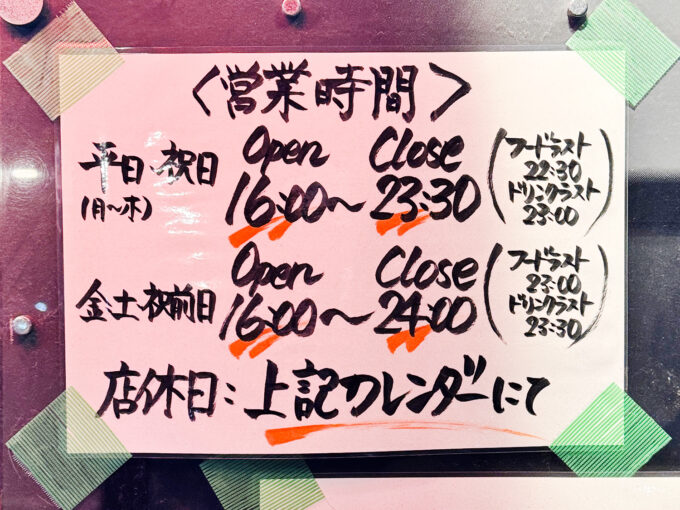 〈営業時間〉
平日・祝日
(月〜木)
Open Close
16:00〜23:30
(フードラスト
22:30
ドリンクラスト
23:00)
金・土・祝前日
Open Close
16:00〜24:00
(フードラスト
23:00
ドリンクラスト
23:30)
店休日:上記カレンダーにて